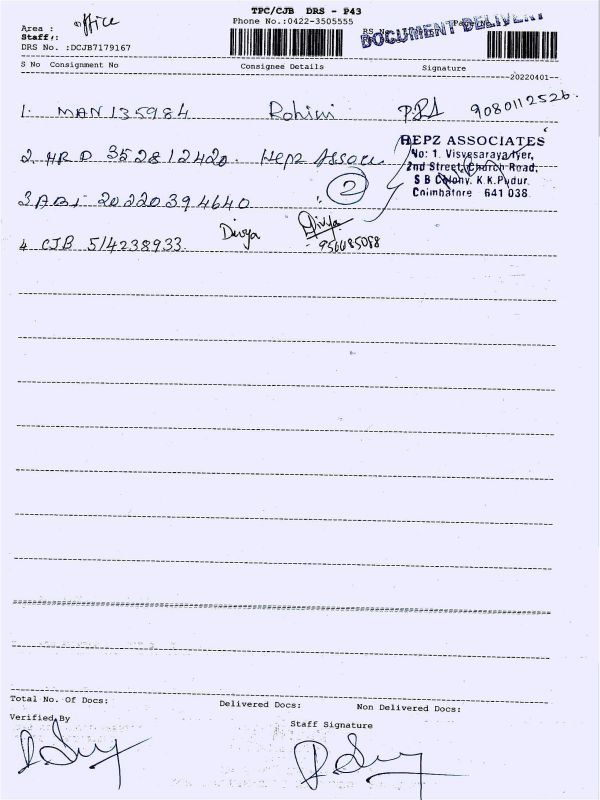 TPC/CJB DRS - P43
Area : office
Phone No.:0422-3505555
DOCUMENT DELIVERY
Staff:
DRS No. :DCJB7179167
S No Consignment No Consignee Details Signature
20220401
1. MAN 135984 Rohini 9080112526.
HEPZ ASSOCIATES
No: 1. Visvesaraya Iyer,
2nd Street, Church Road,
S B Colony. K.K.Pudur.
Coimbatore 641 038
2. HRD 352812420. Hepz Assou
2
3 ABI 20220394640
4 CJB 514238933. Divya Divya
Total No. Of Docs: Delivered Docs: Non Delivered Docs:
Verified By Staff Signature